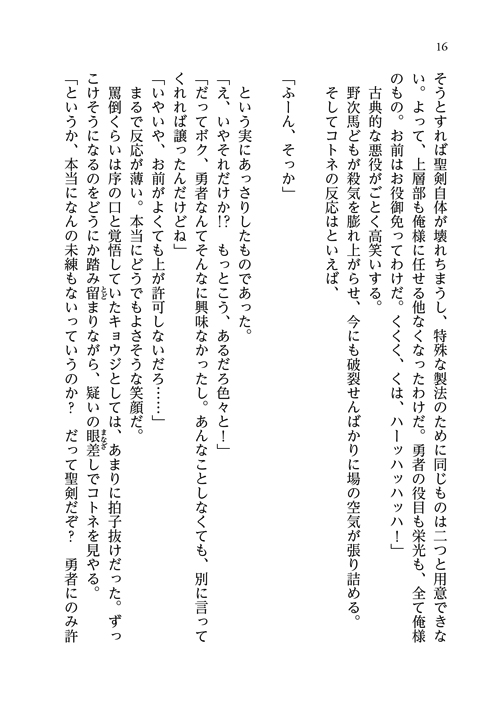 16
そうとすれば聖剣自体が壊れちまうし、特殊な製法のために同じものは二つと用意できな
い。よって、上層部も俺様に任せる他なくなったわけだ。勇者の役目も栄光も、全て俺様
のもの。お前はお役御免ってわけだ。くくく、くは、ハーッハッハッハ！」
古典的な悪役がごとく高笑いする。
野次馬どもが殺気を膨れ上がらせ、今にも破裂せんばかりに場の空気が張り詰める。
そしてコトネの反応はといえば、
「ふーん、そっか」
という実にあっさりしたものであった。
「え、いやそれだけか!?　もっとこう、あるだろ色々と！」
「だってボク、勇者なんてそんなに興味なかったし。あんなことしなくても、別に言って
くれれば譲ったんだけどね」
「いやいや、お前がよくても上が許可しないだろ……」
まるで反応が薄い。本当にどうでもよさそうな笑顔だ。
罵倒くらいは序の口と覚悟していたキョウジとしては、あまりに拍子抜けだった。ずっ
こけそうになるのをどうにか踏み留とどまりながら、疑いの眼差まなざしでコトネを見やる。
「というか、本当になんの未練もないっていうのか？　だって聖剣だぞ？　勇者にのみ許